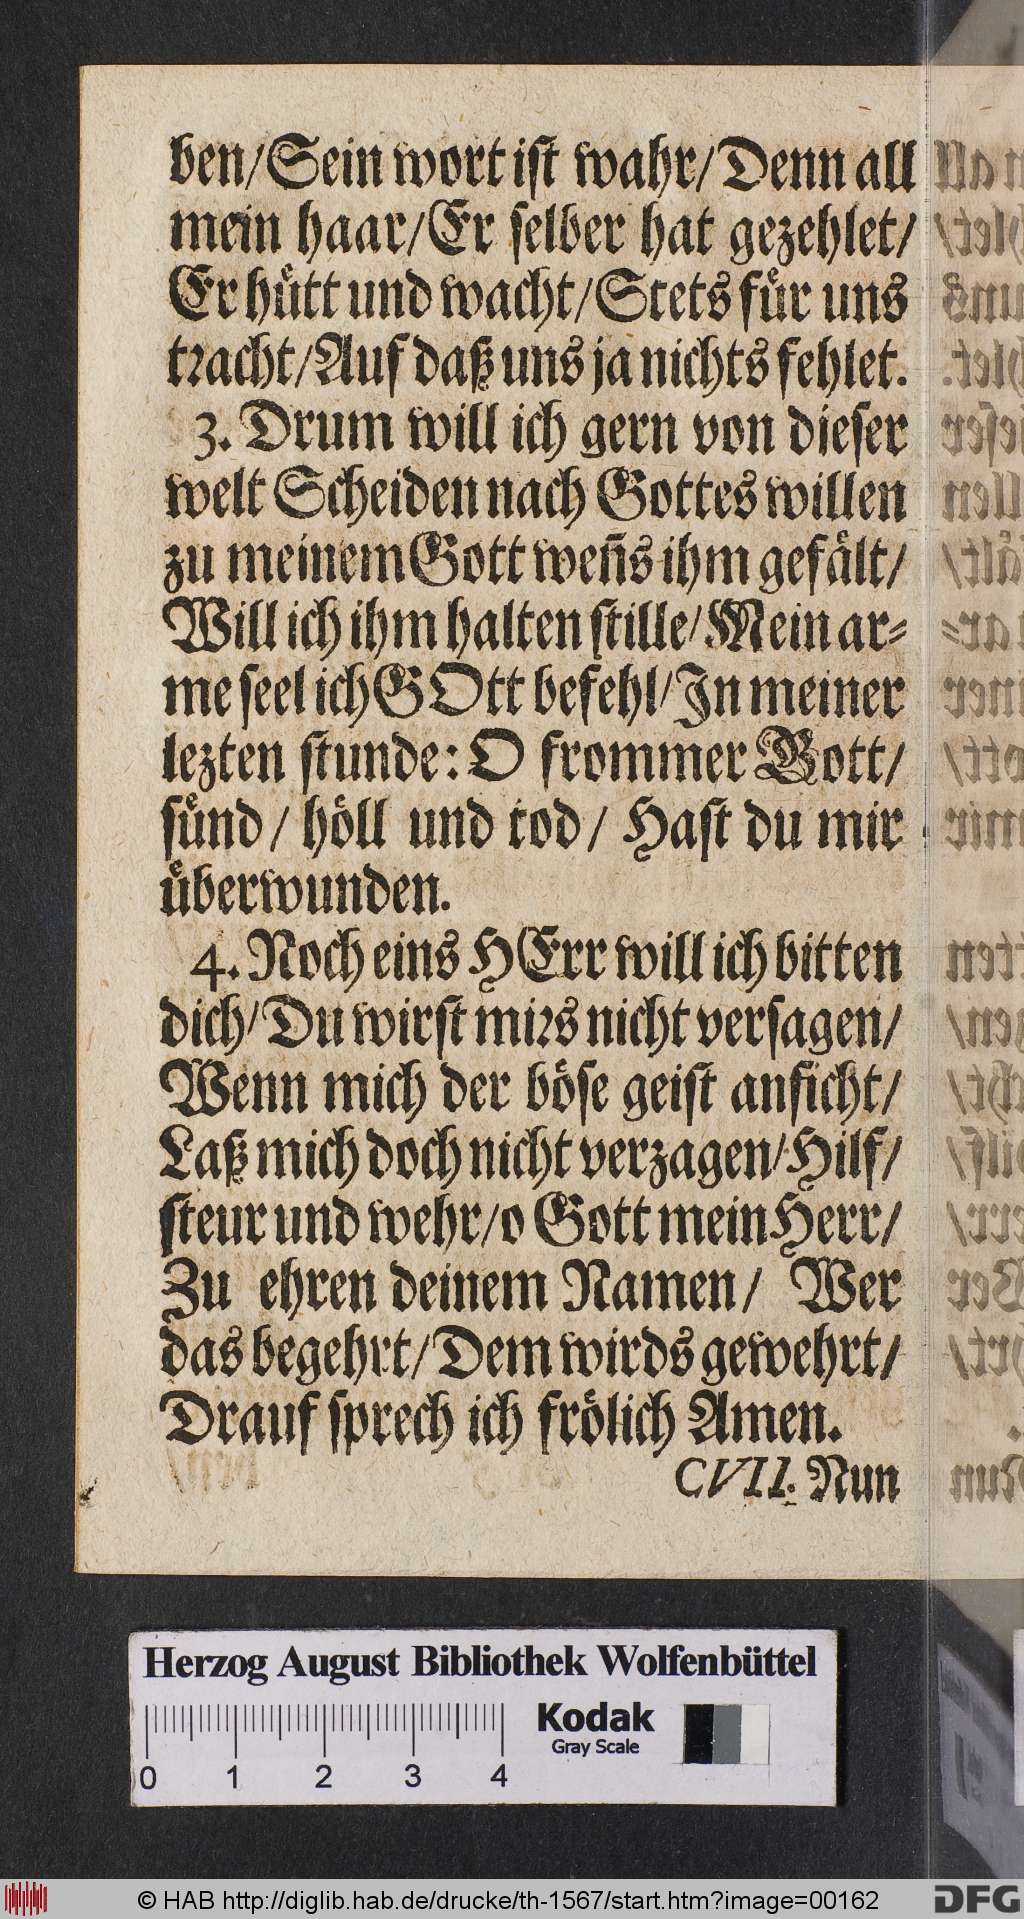 ben/Sein wort ist wahr/Denn all
mein haar/Er selber hat gezehlet/
Er huͤtt und wacht/Stets fuͤr uns
tracht/Auf daß uns ja nichts fehlet.
3. Drum will ich gern von dieser
welt Scheiden nach Gottes willen
zu meinem Gott weñs ihm gefaͤlt/
Will ich ihm halten stille/Mein ar=
me seel ich GOtt befehl/In meiner
lezten stunde: O frommer Gott/
suͤnd/ hoͤll und tod/ Hast du mir
uͤberwunden.
4. Noch eins HErr will ich bitten
dich/Du wirst mirs nicht versagen/
Wenn mich der boͤse geist anficht/
Laß mich doch nicht verzagen/Hilf/
steur und wehr/o Gott mein Herr/
Zu ehren deinem Namen/ Wer
das begehrt/Dem wirds gewehrt/
Drauf sprech ich froͤlich Amen.
CVII. Nun
Herzog August Bibliothek Wolfenbüttel
Kodak
Gray Scale
0 1 2 3 4
© HAB http://diglib.hab.de/drucke/th-1567/start.htm?image=00162
DFG